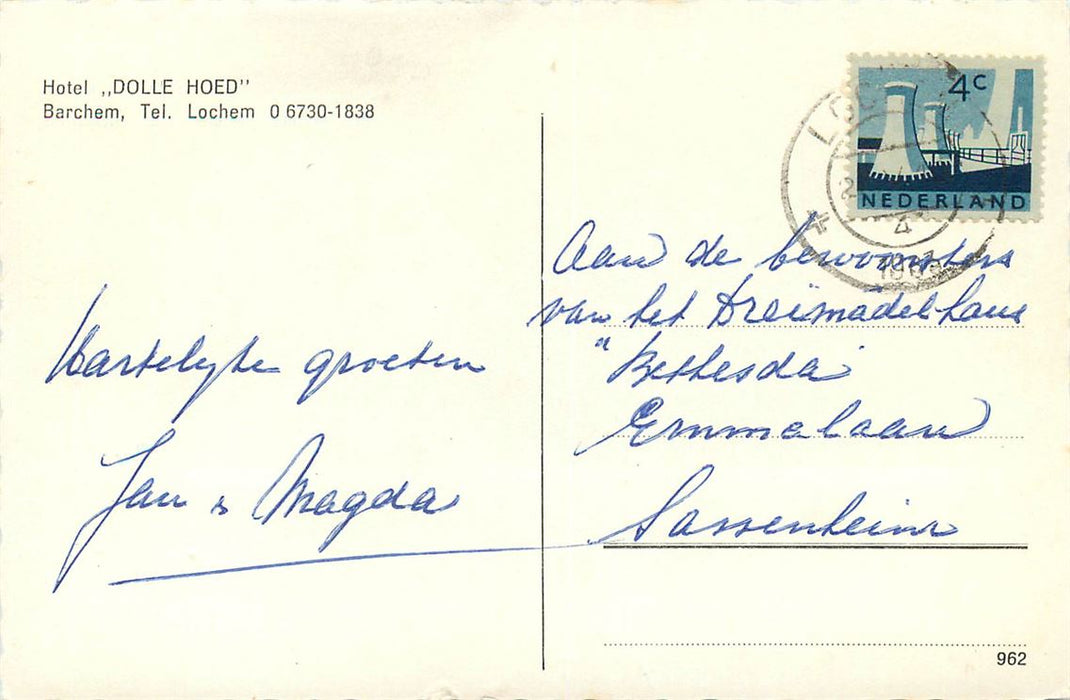 Hotel „DOLLE HOED”
Barchem, Tel. Lochem 0 6730-1838
Hartelijke groeten
Jan & Magda
4c
NEDERLAND
4
Aan de bewoonsters
van het Dreimadelhaus
"Bethesda
Emmalaan
Sassenheim
962